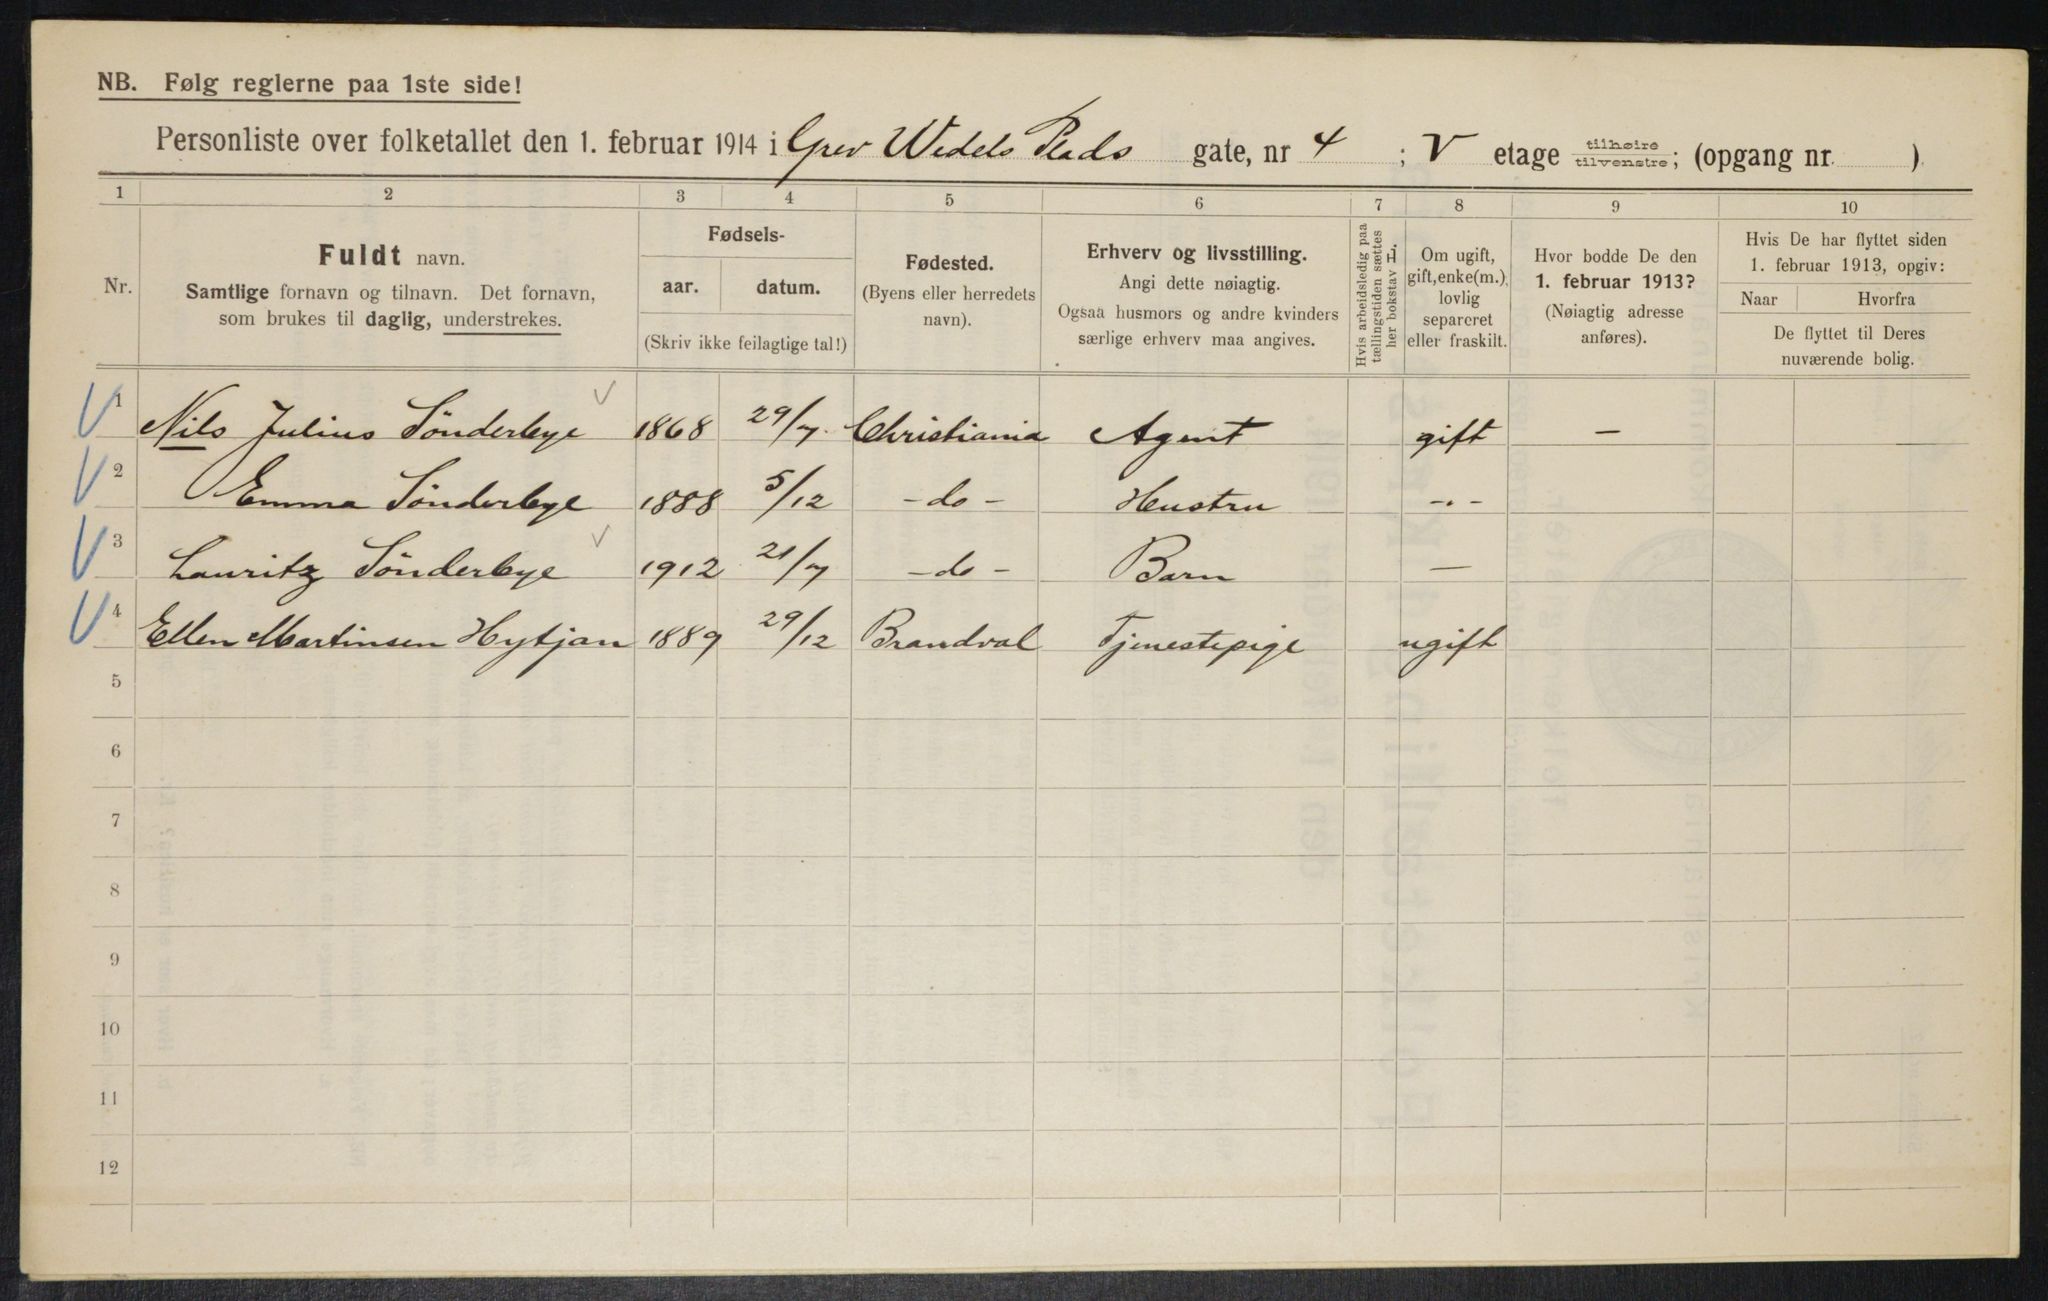 NB. Følg reglerne paa 1ste side!
Personliste over folketallet den 1. februar 1914 i Grev Wedels Plads gate, nr 4 ; V etage tilhøire tilvenstre; (opgang nr )
1 2 3 4 5 6 7 8 9 10
Nr.
Fuldt navn.
Samtlige fornavn og tilnavn. Det fornavn,
som brukes til daglig, understrekes.
Fødsels-
aar. datum.
(Skriv ikke feilagtige tal!)
Fødested.
(Byens eller herredets
navn).
Erhverv og livsstilling.
Angi dette nøiagtig.
Ogsaa husmors og andre kvinders
særlige erhverv maa angives.
Hvis arbeidsledig paa
tællingstiden sættes
her bokstav L.
Om ugift,
gift, enke(m.),
lovlig
separeret
eller fraskilt.
Hvor bodde De den
1. februar 1913?
(Nøiagtig adresse
anføres).
Hvis De har flyttet siden
1. februar 1913, opgiv:
Naar Hvorfra
De flyttet til Deres
nuværende bolig.
1 Nils Julius Sönderbye 1868 29/7 Christiania Agent gift —
2 Emma Sönderbye 1888 5/12 - do - Hustru - " -
3 Lauritz Sönderbye 1912 21/7 - do - Barn —
4 Ellen Martinsen Hytjan 1889 29/12 Brandval Tjenestepige ugift
5
6
7
8
9
10
11
12